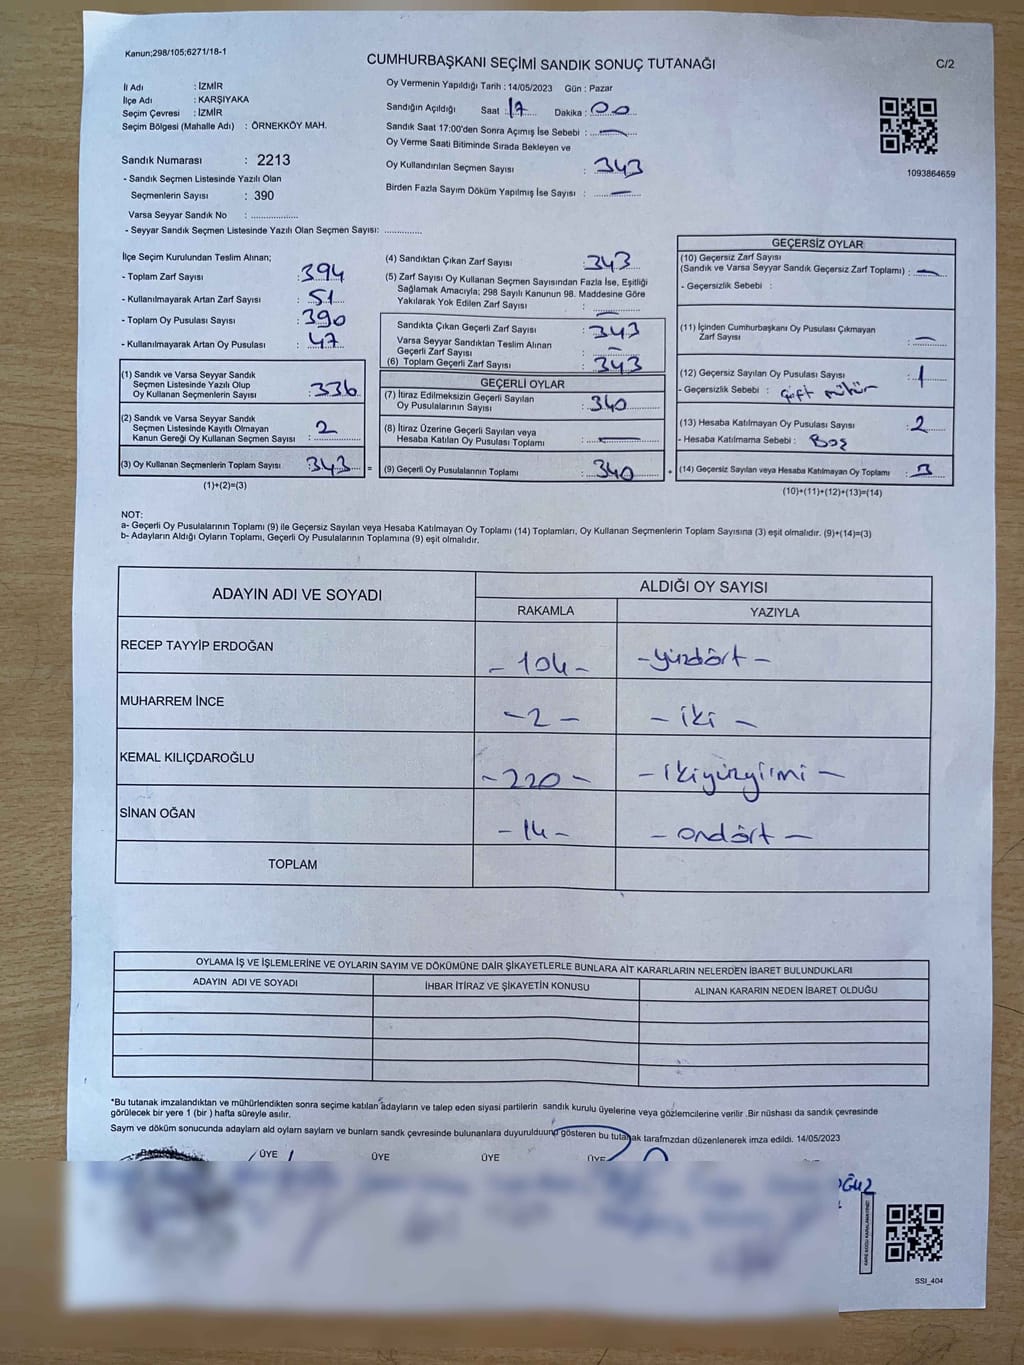 Kanun;298/105;6271/18-1
CUMHURBAŞKANI SEÇİMİ SANDIK SONUÇ TUTANAĞI
C/2
İl Adı : İZMİR
İlçe Adı : KARŞIYAKA
Seçim Çevresi : İZMİR
Seçim Bölgesi (Mahalle Adı) : ÖRNEKKÖY MAH.
Sandık Numarası : 2213
- Sandık Seçmen Listesinde Yazılı Olan
Seçmenlerin Sayısı : 390
Varsa Seyyar Sandık No : ..................
- Seyyar Sandık Seçmen Listesinde Yazılı Olan Seçmen Sayısı: ..............
Oy Vermenin Yapıldığı Tarih : 14/05/2023 Gün : Pazar
Sandığın Açıldığı Saat 17 Dakika : 00
Sandık Saat 17:00'den Sonra Açımış İse Sebebi : —
Oy Verme Saati Bitiminde Sırada Bekleyen ve
Oy Kullandırılan Seçmen Sayısı : 343
Birden Fazla Sayım Döküm Yapılmış İse Sayısı : —
1093864659
İlçe Seçim Kurulundan Teslim Alınan;
- Toplam Zarf Sayısı : 394
- Kullanılmayarak Artan Zarf Sayısı : 51
- Toplam Oy Pusulası Sayısı : 390
- Kullanılmayarak Artan Oy Pusulası : 47
(1) Sandık ve Varsa Seyyar Sandık
Seçmen Listesinde Yazılı Olup
Oy Kullanan Seçmenlerin Sayısı : 336
(2) Sandık ve Varsa Seyyar Sandık
Seçmen Listesinde Kayıtlı Olmayan
Kanun Gereği Oy Kullanan Seçmen Sayısı : 2
(3) Oy Kullanan Seçmenlerin Toplam Sayısı : 343 =
(1)+(2)=(3)
(4) Sandıktan Çıkan Zarf Sayısı : 343
(5) Zarf Sayısı Oy Kullanan Seçmen Sayısından Fazla İse, Eşitliği
Sağlamak Amacıyla; 298 Sayılı Kanunun 98. Maddesine Göre
Yakılarak Yok Edilen Zarf Sayısı : —
Sandıkta Çıkan Geçerli Zarf Sayısı : 343
Varsa Seyyar Sandıktan Teslim Alınan
Geçerli Zarf Sayısı : —
(6) Toplam Geçerli Zarf Sayısı : 343
GEÇERLİ OYLAR
(7) İtiraz Edilmeksizin Geçerli Sayılan
Oy Pusulalarının Sayısı : 340
(8) İtiraz Üzerine Geçerli Sayılan veya
Hesaba Katılan Oy Pusulası Toplamı : —
(9) Geçerli Oy Pusulalarının Toplamı : 340 +
GEÇERSİZ OYLAR
(10) Geçersiz Zarf Sayısı
(Sandık ve Varsa Seyyar Sandık Geçersiz Zarf Toplamı) : —
- Geçersizlik Sebebi :
(11) İçinden Cumhurbaşkanı Oy Pusulası Çıkmayan
Zarf Sayısı : —
(12) Geçersiz Sayılan Oy Pusulası Sayısı : 1
- Geçersizlik Sebebi : Çift mühür
(13) Hesaba Katılmayan Oy Pusulası Sayısı : 2
- Hesaba Katılmama Sebebi : Boş
(14) Geçersiz Sayılan veya Hesaba Katılmayan Oy Toplamı : 3
(10)+(11)+(12)+(13)=(14)
NOT:
a- Geçerli Oy Pusulalarının Toplamı (9) ile Geçersiz Sayılan veya Hesaba Katılmayan Oy Toplamı (14) Toplamları, Oy Kullanan Seçmenlerin Toplam Sayısına (3) eşit olmalıdır. (9)+(14)=(3)
b- Adayların Aldığı Oyların Toplamı, Geçerli Oy Pusulalarının Toplamına (9) eşit olmalıdır.
ADAYIN ADI VE SOYADI
ALDIĞI OY SAYISI
RAKAMLA YAZIYLA
RECEP TAYYİP ERDOĞAN - 104 - - yüzdört -
MUHARREM İNCE - 2 - - iki -
KEMAL KILIÇDAROĞLU - 220 - - ikiyüzyirmi -
SİNAN OĞAN - 14 - - ondört -
TOPLAM
OYLAMA İŞ VE İŞLEMLERİNE VE OYLARIN SAYIM VE DÖKÜMÜNE DAİR ŞİKAYETLERLE BUNLARA AİT KARARLARIN NELERDEN İBARET BULUNDUKLARI
ADAYIN ADI VE SOYADI İHBAR İTİRAZ VE ŞİKAYETİN KONUSU ALINAN KARARIN NEDEN İBARET OLDUĞU
*Bu tutanak imzalandıktan ve mühürlendikten sonra seçime katılan adayların ve talep eden siyasi partilerin sandık kurulu üyelerine veya gözlemcilerine verilir .Bir nüshası da sandık çevresinde
görülecek bir yere 1 (bir ) hafta süreyle asılır.
Sayım ve döküm sonucunda adayların ald oyların saylarn ve bunların sandk çevresinde bulunanlara duyurulduunu gösteren bu tutanak tarafımzdan düzenlenerek imza edildi. 14/05/2023
BAŞKAN ÜYE ÜYE ÜYE ÜYE
SSI_404